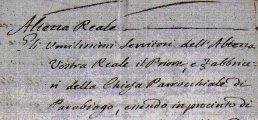 Altezza Reale
Gli Umilissimi Servitori dell'Altezza
Vostra Reale il Priore, e Fabbrice=
ri della Chiesa Parrochiale di
Parabiago, essendo in procinto di